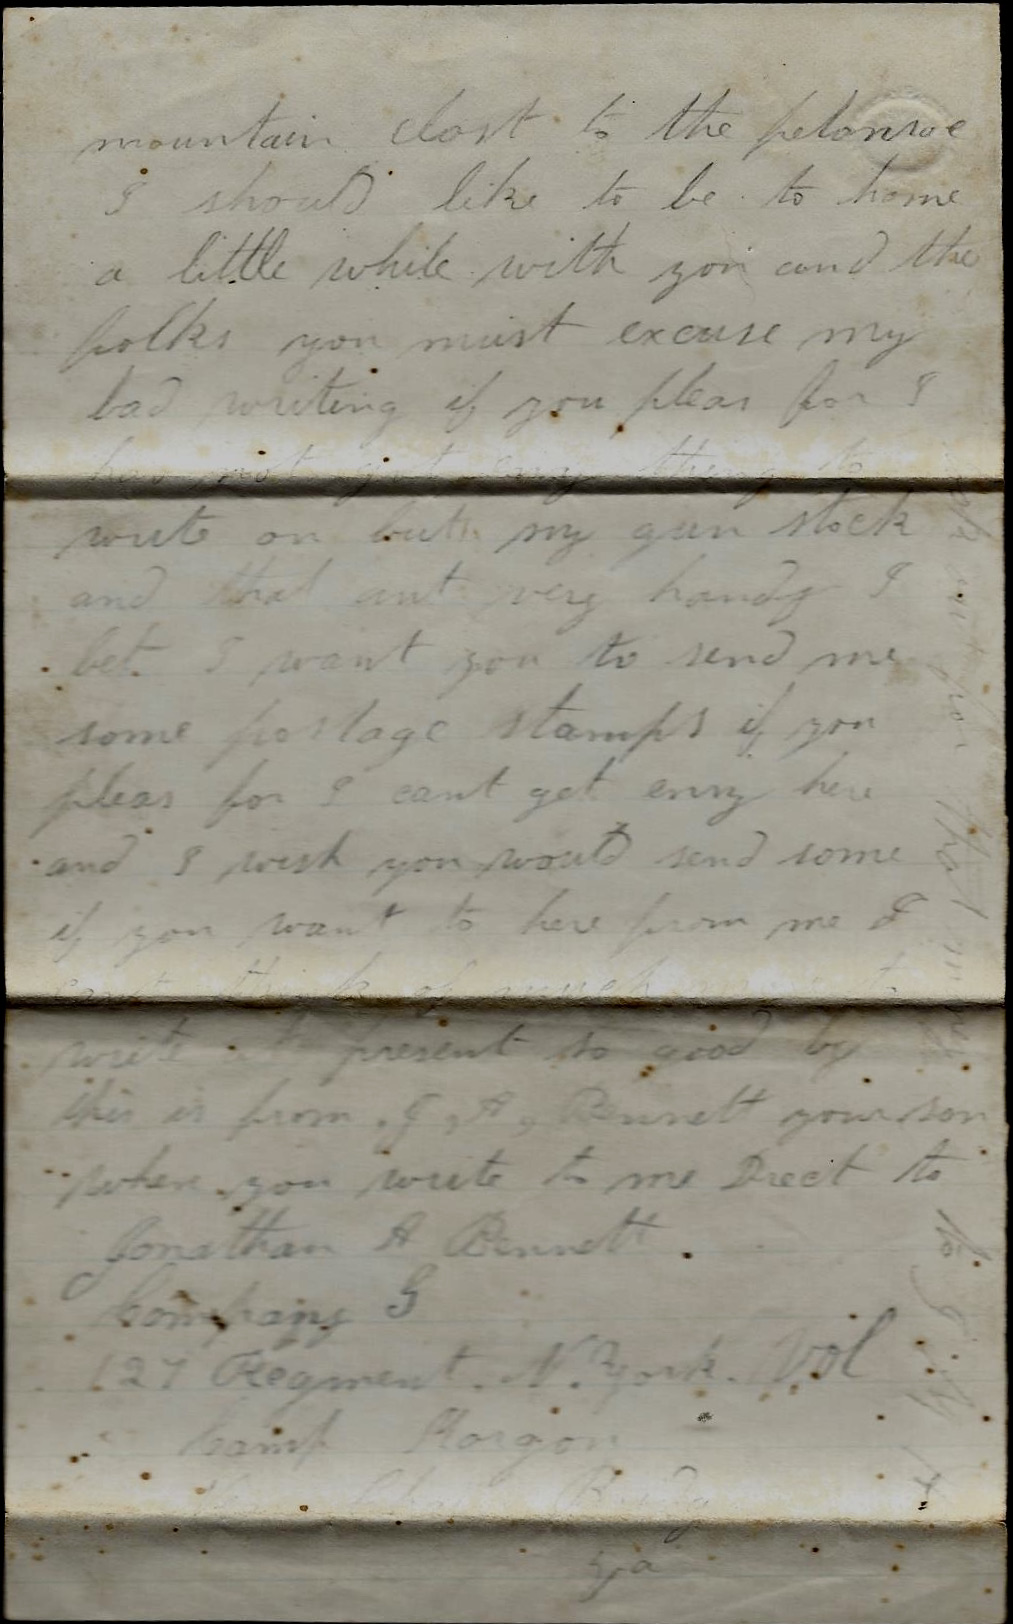 mountain clost to the pelonroe
I should like to be to home
a little while with you and the
folks you must excuse my
bad writing if you pleas for I
hav not got eny thing to
write on but my gun stock
and that ant very handy I
bet I want you to send me
some postage stamps if you
pleas for I cant get enny here
and I wish you would send some
if you want to here from me I
cant think of much more to
write at present so good by
this is from J, A, Bennett your son
when you write to me Drect to
Jonathan A Bennett
Company G
127 Regment. N. York. Vol
Camp
Bridg